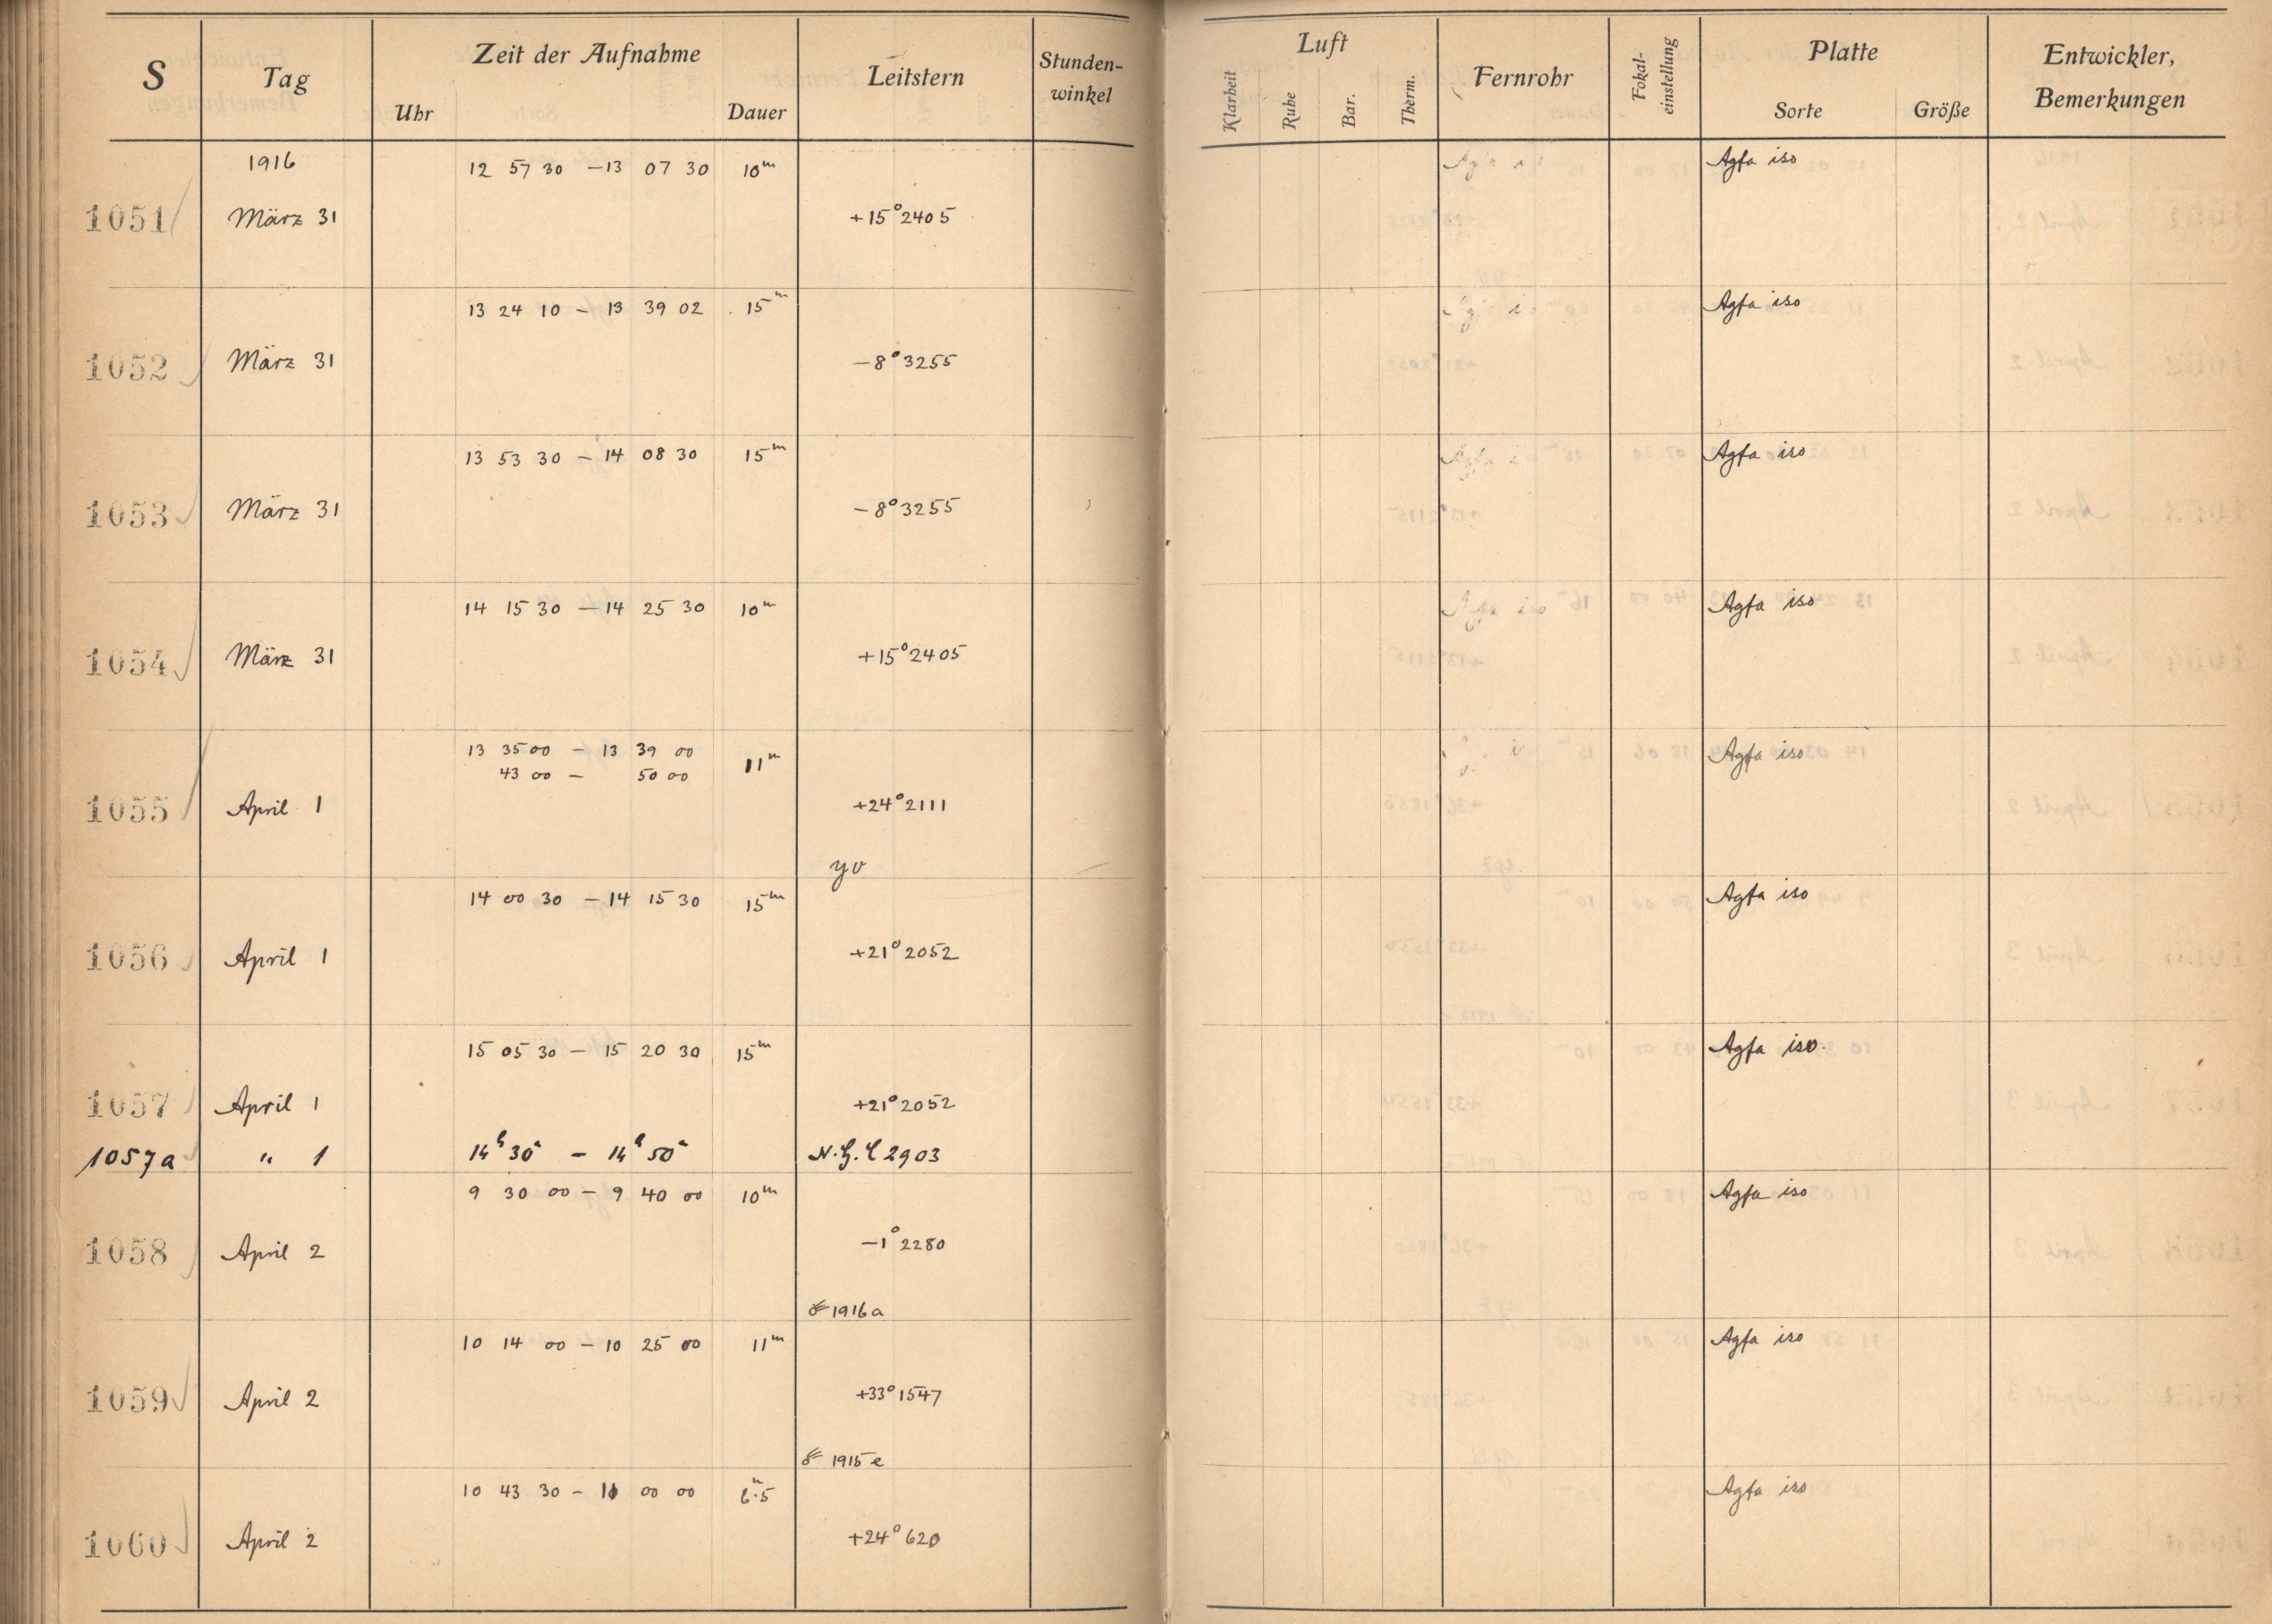 S Tag Zeit der Aufnahme Leitstern Stunden-winkel Luft Fernrohr Fokal-einstellung Platte Entwickler, Bemerkungen
Uhr Dauer Klarheit Ruhe Bar. Therm. Sorte Größe
1916 12 57 30 – 13 07 30 10m Agfa iso
1051 März 31 +15°2405
13 24 10 – 13 39 02 15m Agfa iso
1052 März 31 –8°3255
13 53 30 – 14 08 30 15m Agfa iso
1053 März 31 –8°3255
14 15 30 – 14 25 30 10m Agfa iso
1054 März 31 +15°2405
13 35 00 – 13 39 00 Agfa iso
43 00 – 50 00 11m
1055 April 1 +24°2111
yv
14 00 30 – 14 15 30 15m Agfa iso
1056 April 1 +21°2052
15 05 30 – 15 20 30 15m Agfa iso.
1057 April 1 +21°2052
1057a " 1 14h 30m – 14h 50m N.G.C 2903
9 30 00 – 9 40 00 10m Agfa iso
1058 April 2 –1°2280
☄ 1916 a
10 14 00 – 10 25 00 11m Agfa iso
1059 April 2 +33°1547
☄ 1915 e
10 43 30 – 11 00 00 6m.5 Agfa iso
1060 April 2 +24°620